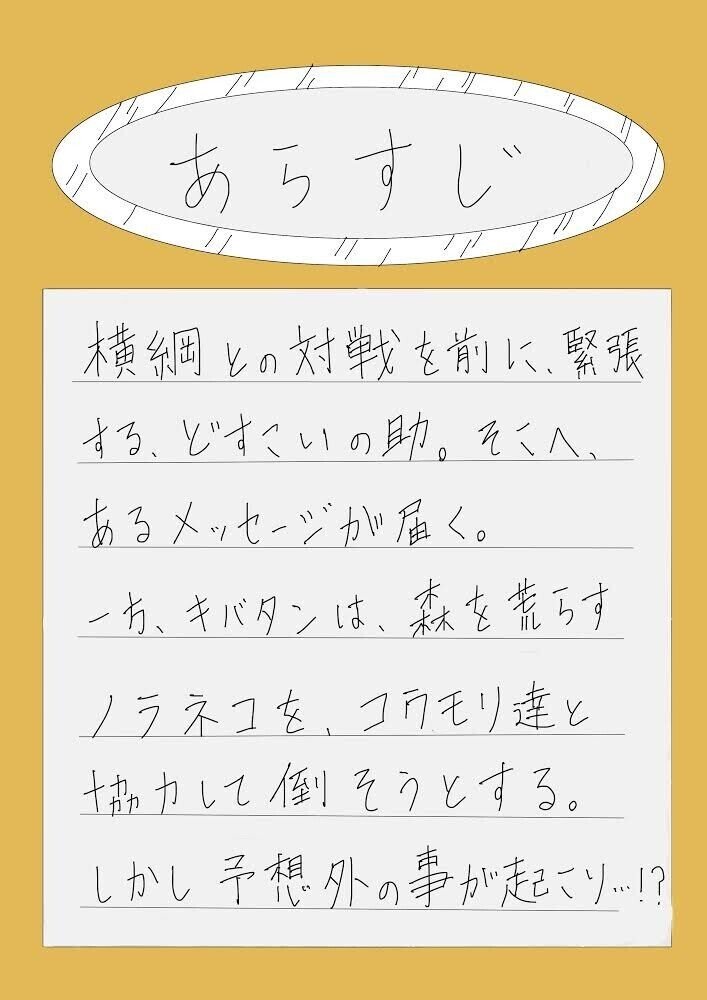 あらすじ
横綱との対戦を前に、緊張
する、どすこいの助。そこへ、
あるメッセージが届く。
一方、キバタンは、森を荒らす
ノラネコを、コウモリ達と
協力して倒そうとする。
しかし予想外の事が起こり…!?